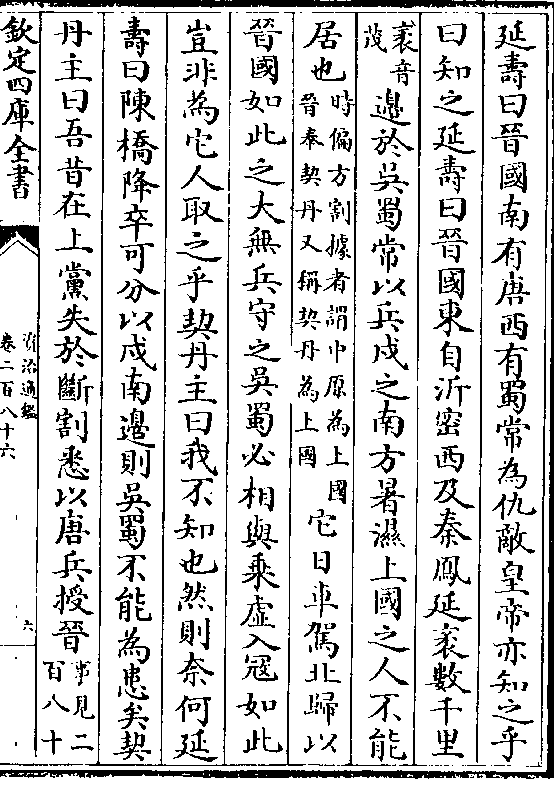 延壽曰晉國南有唐西有蜀常為仇敵皇帝亦知之乎
曰知之延壽曰晉國東自沂密西及秦鳳延袤數千里
袤音茂邉於吳蜀常以兵戍之南方暑濕上國之人不能
居也時偏方割據者謂中原為上國晉奉契丹又稱契丹為上國它日車駕北歸以
晉國如此之大無兵守之吳蜀必相與乗虛入冦如此
豈非為它人取之乎契丹主曰我不知也然則奈何延
壽曰陳橋降卒可分以戍南邉則吳蜀不能為患矣契
丹主曰吾昔在上黨失於斷割悉以唐兵授晉事見二百八十
欽定四庫全書
資治通鑑
卷二百八十六
六